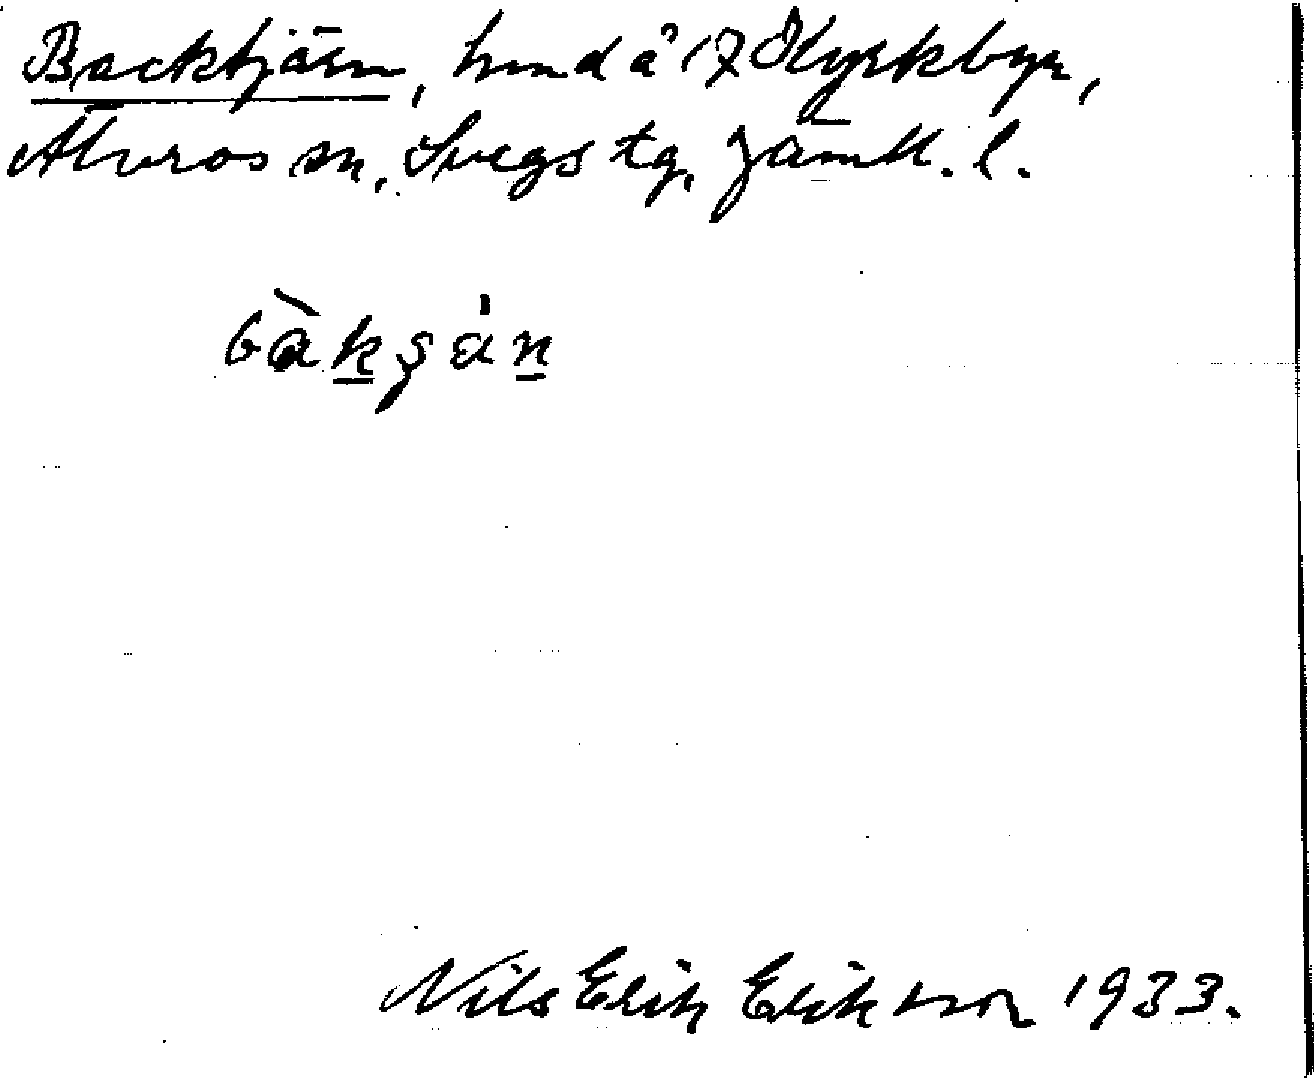 Backtjärn, hmd å 17 Kyrkbyn,
Älvros sn, Svegs tg, Jämtl. l.
bàkşá̍n
Nils Erik Eriksson 1933.